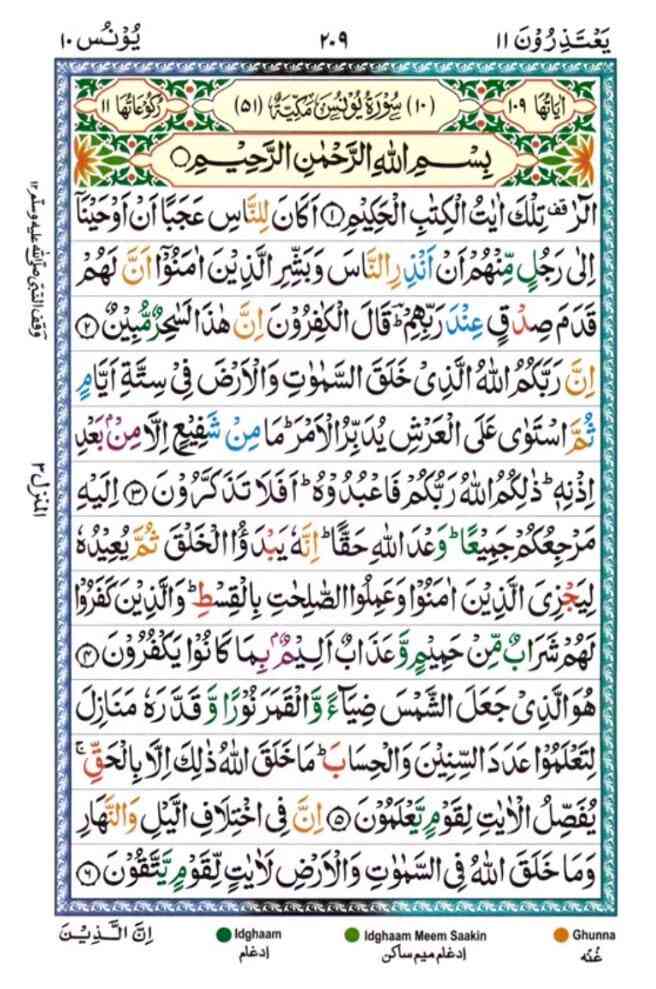 يَعْتَذِرُوْنَ ۱۱ ۲۰۹ يُوْنُس ۱۰
اٰيَاتُهَا ۱۰۹ (۱۰) سُوْرَةُ يُوْنُسَ مَكِّيَّةٌ (۵۱) رُكُوْعَاتُهَا ۱۱
بِسْمِ اللّٰهِ الرَّحْمٰنِ الرَّحِيْمِ
الٓرٰ قف تِلْكَ اٰيٰتُ الْكِتٰبِ الْحَكِيْمِ ۱ اَكَانَ لِلنَّاسِ عَجَبًا اَنْ اَوْحَيْنَاۤ
اِلٰى رَجُلٍ مِّنْهُمْ اَنْ اَنْذِرِ النَّاسَ وَبَشِّرِ الَّذِيْنَ اٰمَنُوْۤا اَنَّ لَهُمْ
قَدَمَ صِدْقٍ عِنْدَ رَبِّهِمْ ؕ قَالَ الْكٰفِرُوْنَ اِنَّ هٰذَا لَسٰحِرٌ مُّبِيْنٌ ۲
اِنَّ رَبَّكُمُ اللّٰهُ الَّذِىْ خَلَقَ السَّمٰوٰتِ وَالْاَرْضَ فِىْ سِتَّةِ اَيَّامٍ
ثُمَّ اسْتَوٰى عَلَى الْعَرْشِ يُدَبِّرُ الْاَمْرَ ؕ مَا مِنْ شَفِيْعٍ اِلَّا مِنْۢ بَعْدِ
اِذْنِهٖ ؕ ذٰلِكُمُ اللّٰهُ رَبُّكُمْ فَاعْبُدُوْهُ ؕ اَفَلَا تَذَكَّرُوْنَ ۳ اِلَيْهِ
مَرْجِعُكُمْ جَمِيْعًا ؕ وَعْدَ اللّٰهِ حَقًّا ؕ اِنَّهٗ يَبْدَؤُا الْخَلْقَ ثُمَّ يُعِيْدُهٗ
لِيَجْزِىَ الَّذِيْنَ اٰمَنُوْا وَعَمِلُوا الصّٰلِحٰتِ بِالْقِسْطِ ؕ وَالَّذِيْنَ كَفَرُوْا
لَهُمْ شَرَابٌ مِّنْ حَمِيْمٍ وَّعَذَابٌ اَلِيْمٌۢ بِمَا كَانُوْا يَكْفُرُوْنَ ۴
هُوَ الَّذِىْ جَعَلَ الشَّمْسَ ضِيَآءً وَّالْقَمَرَ نُوْرًا وَّقَدَّرَهٗ مَنَازِلَ
لِتَعْلَمُوْا عَدَدَ السِّنِيْنَ وَالْحِسَابَ ؕ مَا خَلَقَ اللّٰهُ ذٰلِكَ اِلَّا بِالْحَقِّ ۚ
يُفَصِّلُ الْاٰيٰتِ لِقَوْمٍ يَّعْلَمُوْنَ ۵ اِنَّ فِى اخْتِلَافِ الَّيْلِ وَالنَّهَارِ
وَمَا خَلَقَ اللّٰهُ فِى السَّمٰوٰتِ وَالْاَرْضِ لَاٰيٰتٍ لِّقَوْمٍ يَّتَّقُوْنَ ۶
وقف النبى صلى الله عليه وسلم ۱۲
المنزل ۳
اِنَّ الَّذِيْنَ
Idghaam Idghaam Meem Saakin Ghunna
ادغام ادغام ميم ساكن غُنّه